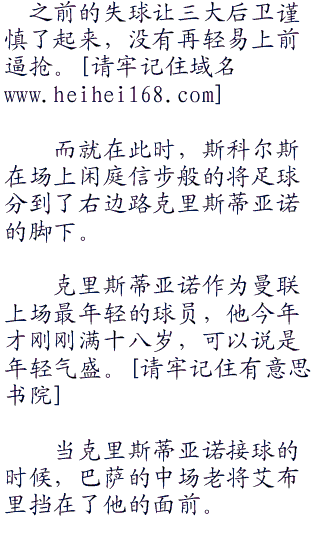 之前的失球让三大后卫谨
慎了起来，没有再轻易上前
逼抢。[请牢记住域名
www.heihei168.com]
而就在此时，斯科尔斯
在场上闲庭信步般的将足球
分到了右边路克里斯蒂亚诺
的脚下。
克里斯蒂亚诺作为曼联
上场最年轻的球员，他今年
才刚刚满十八岁，可以说是
年轻气盛。[请牢记住有意思
书院]
当克里斯蒂亚诺接球的
时候，巴萨的中场老将艾布
里挡在了他的面前。